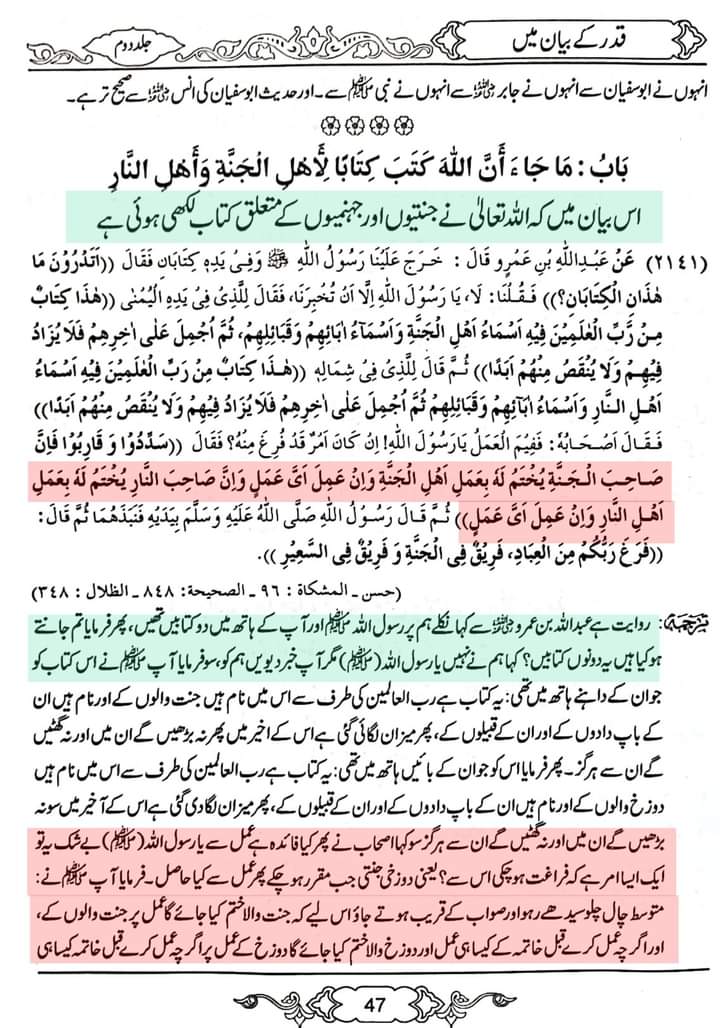 قدر کے بیان میں
جلد دوم
انہوں نے ابو سفیان سے انہوں نے جابر رضی اللہ عنہ سے انہوں نے نبی ﷺ سے۔ اور حدیث ابو سفیان کی انس رضی اللہ عنہ سے صحیح تر ہے۔
بَابُ : مَا جَاءَ أَنَّ اللهَ كَتَبَ كِتَابًا لِأَهْلِ الْجَنَّةِ وَأَهْلِ النَّارِ
اس بیان میں کہ اللہ تعالیٰ نے جنتیوں اور جہنمیوں کے متعلق کتاب لکھی ہوئی ہے
(۲۱٤۱) عَنْ عَبْدِاللّٰهِ بْنِ عَمْرٍو قَالَ : خَرَجَ عَلَيْنَا رَسُوْلُ اللّٰهِ ﷺ وَفِيْ يَدِهٖ كِتَابَانِ فَقَالَ ((اَتَدْرُوْنَ مَا
هٰذَانِ الْكِتَابَانِ؟)) فَقُلْنَا: لَا، يَا رَسُوْلَ اللّٰهِ اِلَّا اَنْ تُخْبِرَنَا، فَقَالَ لِلَّذِيْ فِيْ يَدِهِ الْيُمْنٰى ((هٰذَا كِتَابٌ
مِنْ رَّبِّ الْعٰلَمِيْنَ فِيْهِ اَسْمَاءُ اَهْلِ الْجَنَّةِ وَاَسْمَاءُ اٰبَائِهِمْ وَقَبَائِلِهِمْ، ثُمَّ اُجْمِلَ عَلٰى اٰخِرِهِمْ فَلَا يُزَادُ
فِيْهِمْ وَلَا يُنْقَصُ مِنْهُمْ اَبَدًا)) ثُمَّ قَالَ لِلَّذِيْ فِيْ شِمَالِهٖ ((هٰذَا كِتَابٌ مِنْ رَّبِّ الْعٰلَمِيْنَ فِيْهِ اَسْمَاءُ
اَهْلِ النَّارِ وَاَسْمَاءُ اٰبَآئِهِمْ وَقَبَائِلِهِمْ ثُمَّ اُجْمِلَ عَلٰى اٰخِرِهِمْ فَلَا يُزَادُ فِيْهِمْ وَلَا يُنْقَصُ مِنْهُمْ اَبَدًا))
فَقَالَ اَصْحَابُهٗ : فَفِيْمَ الْعَمَلُ يَا رَسُوْلَ اللّٰهِ! اِنْ كَانَ اَمْرٌ قَدْ فُرِغَ مِنْهُ؟ فَقَالَ ((سَدِّدُوْا وَ قَارِبُوْا فَاِنَّ
صَاحِبَ الْجَنَّةِ يُخْتَمُ لَهٗ بِعَمَلِ اَهْلِ الْجَنَّةِ وَاِنْ عَمِلَ اَيَّ عَمَلٍ وَاِنَّ صَاحِبَ النَّارِ يُخْتَمُ لَهٗ بِعَمَلِ
اَهْلِ النَّارِ وَاِنْ عَمِلَ اَيَّ عَمَلٍ)) ثُمَّ قَالَ رَسُوْلُ اللّٰهِ صَلَّى اللّٰهُ عَلَيْهِ وَسَلَّمَ بِيَدَيْهِ فَنَبَذَهُمَا ثُمَّ قَالَ :
((فَرَغَ رَبُّكُمْ مِنَ الْعِبَادِ، فَرِيْقٌ فِي الْجَنَّةِ وَ فَرِيْقٌ فِي السَّعِيْرِ )).
(حسن - المشكاة : ٩٦ - الصحيحة : ٨٤٨ - الظلال : ٣٤٨)
ترجمہ: روایت ہے عبداللہ بن عمرو رضی اللہ عنہ سے کہا نکلے ہم پر رسول اللہ ﷺ اور آپ کے ہاتھ میں دو کتابیں تھیں، پھر فرمایا تم جانتے
ہو کیا ہیں یہ دونوں کتابیں؟ کہا ہم نے نہیں یا رسول اللہ (ﷺ) مگر آپ خبر دیویں ہم کو، سو فرمایا آپ ﷺ نے اس کتاب کو
جو ان کے داہنے ہاتھ میں تھی: یہ کتاب ہے رب العالمین کی طرف سے اس میں نام ہیں جنت والوں کے اور نام ہیں ان
کے باپ دادوں کے اور ان کے قبیلوں کے، پھر میزان لگائی گئی ہے اس کے اخیر میں پھر نہ بڑھیں گے ان میں اور نہ گھٹیں
گے ان سے ہرگز۔ پھر فرمایا اس کو جو ان کے بائیں ہاتھ میں تھی: یہ کتاب ہے رب العالمین کی طرف سے اس میں نام ہیں
دوزخ والوں کے اور نام ہیں ان کے باپ دادوں کے اور ان کے قبیلوں کے، پھر میزان لگا دی گئی ہے اس کے آخیر میں سو نہ
بڑھیں گے ان میں اور نہ گھٹیں گے ان سے ہرگز سو کہا اصحاب نے پھر کیا فائدہ ہے عمل سے یا رسول اللہ (ﷺ) بے شک یہ تو
ایک ایسا امر ہے کہ فراغت ہو چکی اس سے؟ یعنی دوزخی جنتی جب مقرر ہو چکے پھر عمل سے کیا حاصل۔ فرمایا آپ ﷺ نے:
متوسط چال چلو سیدھے رہو اور صواب کے قریب ہوتے جاؤ اس لیے کہ جنت والا ختم کیا جائے گا عمل پر جنت والوں کے،
اور اگرچہ عمل کرے قبل خاتمہ کے کیسا ہی عمل اور دوزخ والا ختم کیا جائے گا دوزخ کے عمل پر اگرچہ عمل کرے قبل خاتمہ کیسا ہی
47